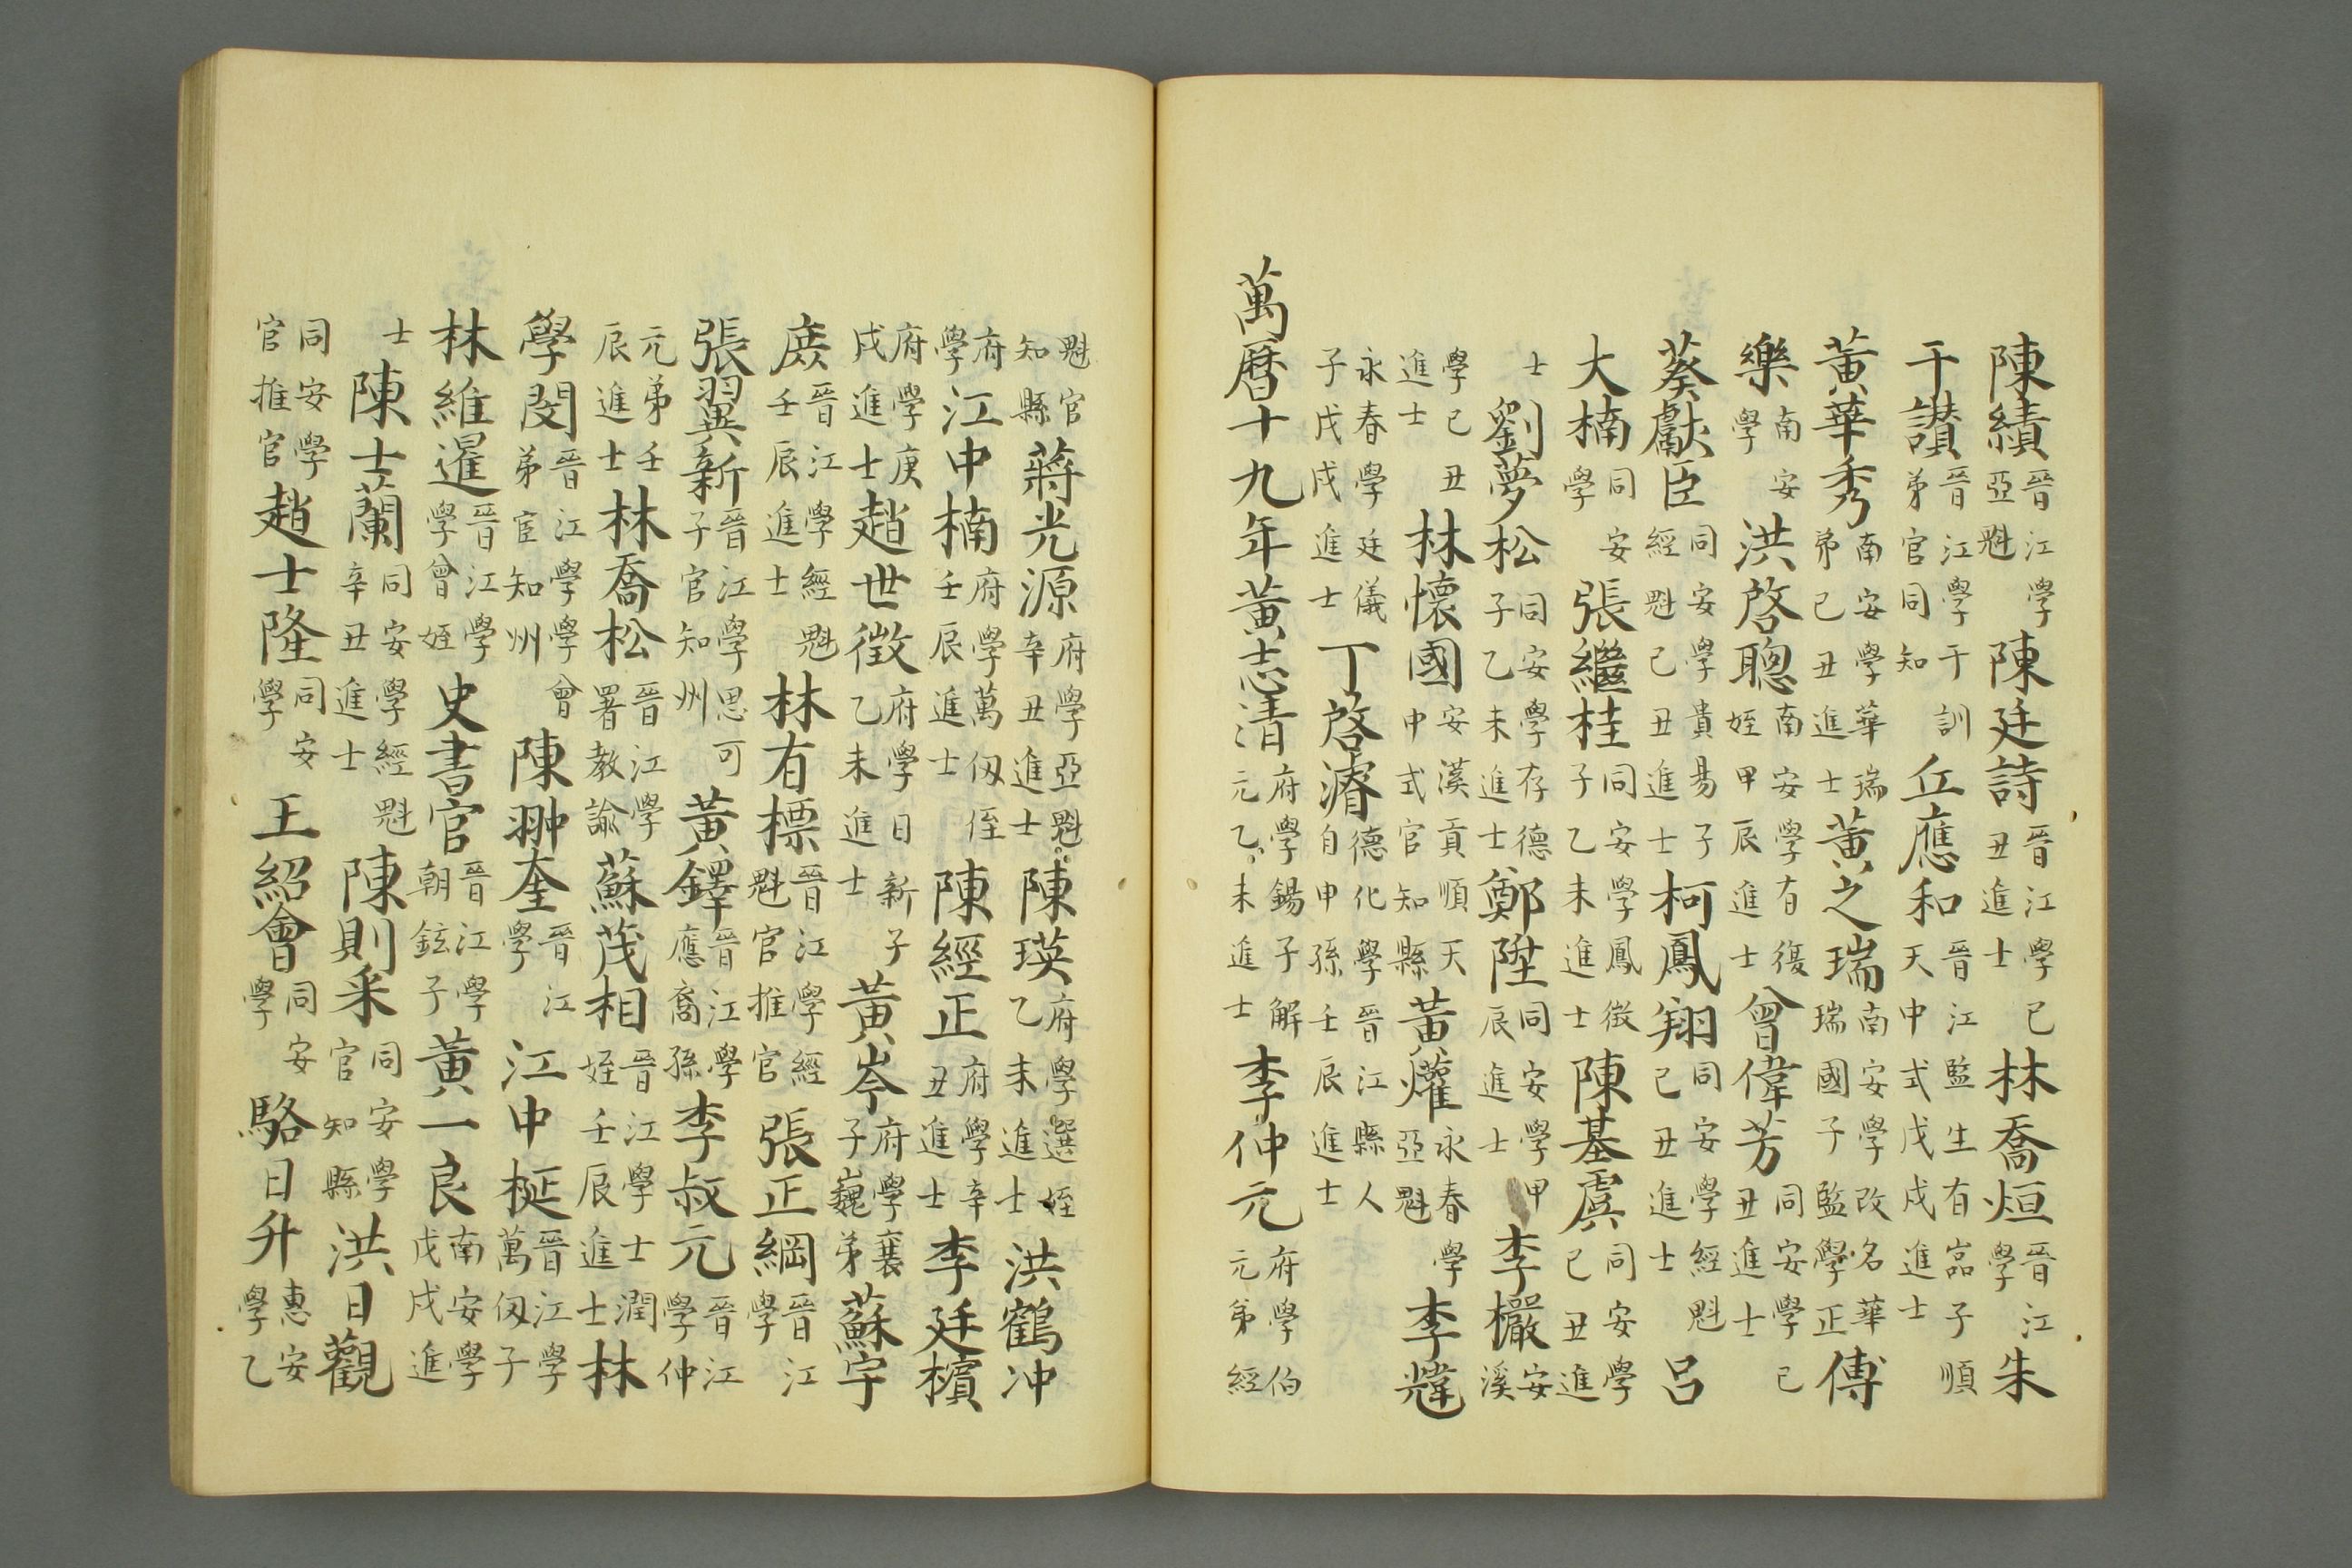 陳績晉江學亞魁陳廷詩晉江學己丑進士林喬烜晉江學朱
干讃晉江學干訓弟官同知丘應和晉江監生有嵓子順天中式戊戌進士
黃華秀南安學華瑞弟己丑進士黃之瑞南安學改名華瑞國子監學正傅
樂南安學洪啓聰南安學有復姪甲辰進士曾偉芳同安學己丑進士
蔡獻臣同安學貴易子經魁己丑進士柯鳳翔同安學經魁己丑進士呂
大楠同安學張繼桂同安學鳳徵子乙未進士陳基虞同安學己丑進
士劉夢松同安學存德子乙未進士鄭陞同安學甲辰進士李欕安溪
學己丑進士林懷國安溪貢順天中式官知縣黃爟永春學亞魁李
永春學廷儀子戊戌進士丁啓濬德化學晉江縣人自申孫壬辰進士
萬曆十九年黃志清府學錫子解元乙未進士李仲元府學伯元弟經
魁官知縣蔣光源府學亞魁辛丑進士陳瑛府學選姪乙未進士洪鶴冲
府學江中楠府學萬仞侄壬辰進士陳經正府學辛丑進士李廷檳
府學庚戌進士趙世徵府學日新子乙未進士黃岺府學襄子巍弟蘇宇
庶晉江學經魁壬辰進士林有標晉江學經魁官推官張正綱晉江學
張翼新晉江學思可子官知州黃鐸晉江學應裔孫李叔元晉江學仲
元弟壬辰進士林喬松晉江學署教諭蘇茂相晉江學士潤姪壬辰進士林
學閔晉江學學曾弟宦知州陳翀奎晉江學江中梴晉江學萬仞子
林維暹晉江學學曾姪史書官晉江學朝鉉子黃一良南安學戊戌進
士陳士蘭同安學經魁辛丑進士陳則采同安學官知縣洪日觀
同安學官推官趙士隆同安學王紹會同安學駱日升惠安學乙